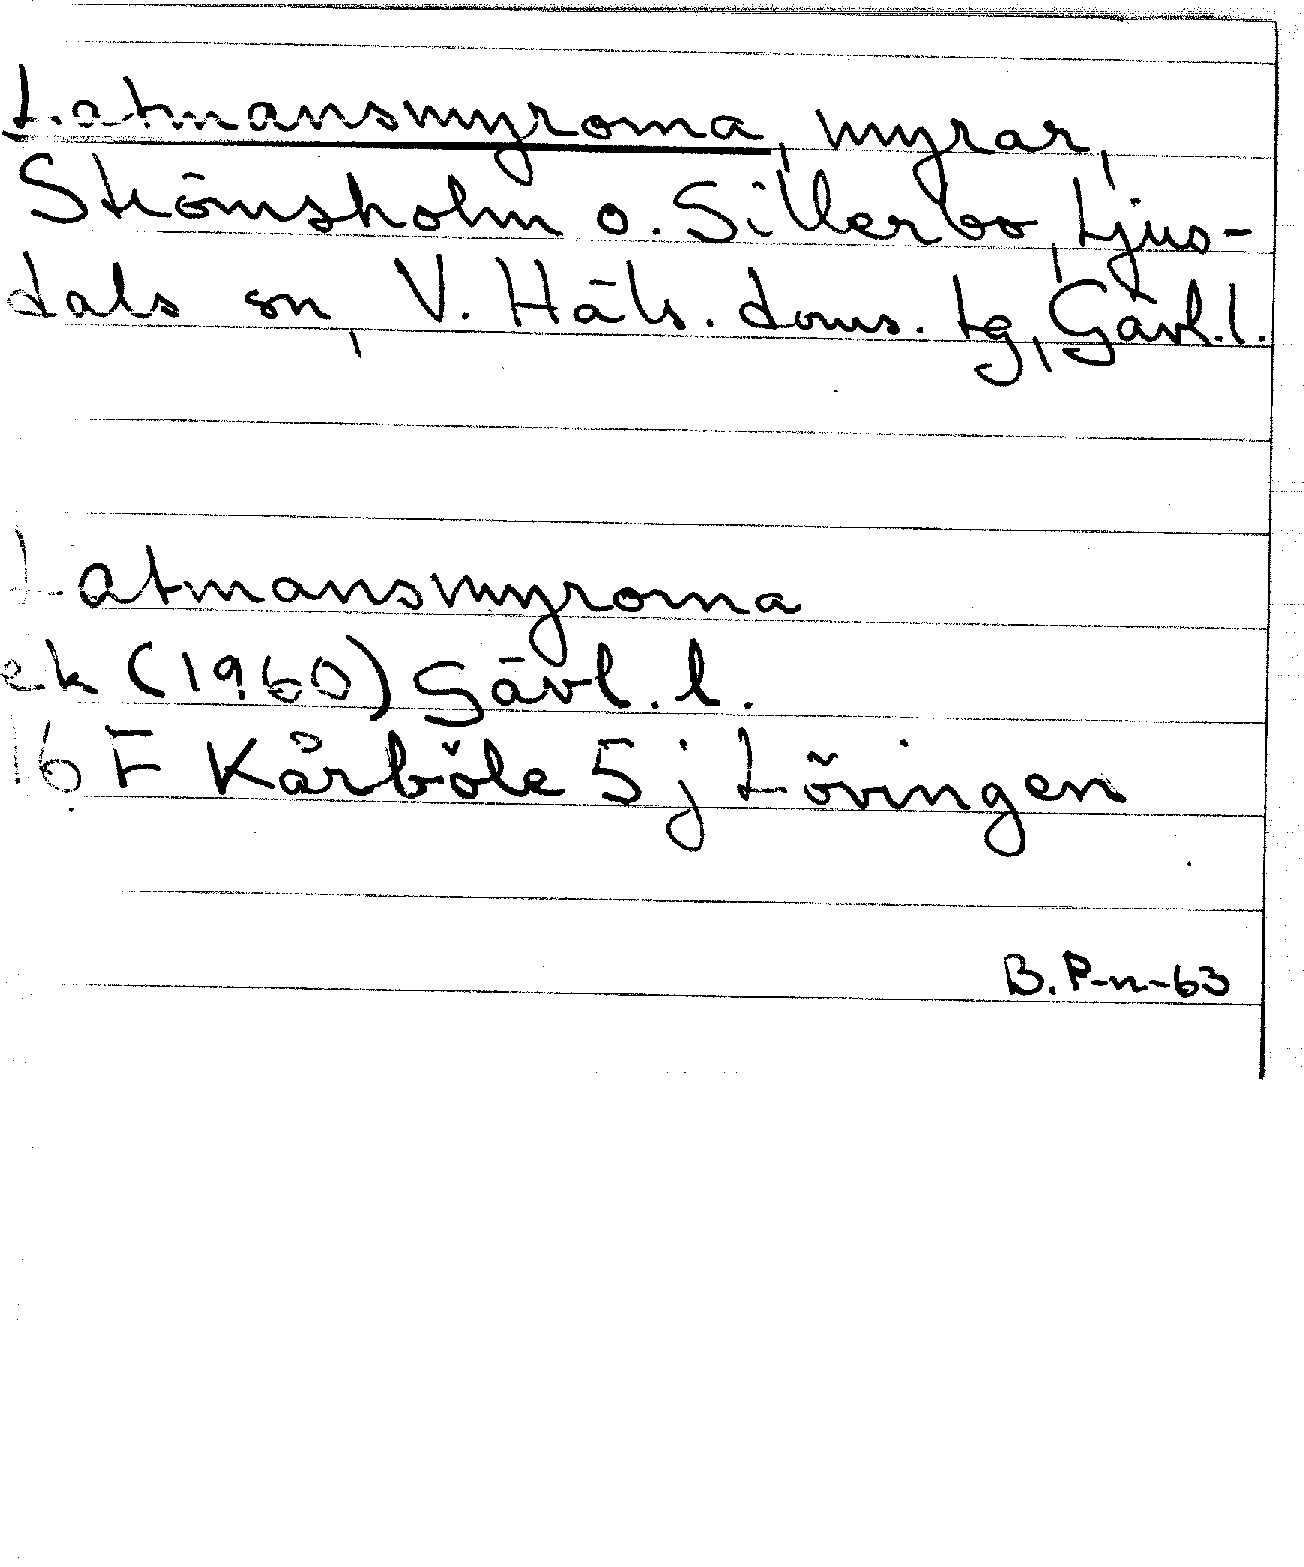 Latmansmyrorna, myrar,
Strömsholm o. Sillerbo, Ljus-
dals sn, V. Häls. doms. tg, Gävl.l.
Latmansmyrorna
ek (1960) Gävl. l.
16 F Kårböle 5 j Lövingen
B. P-n-63